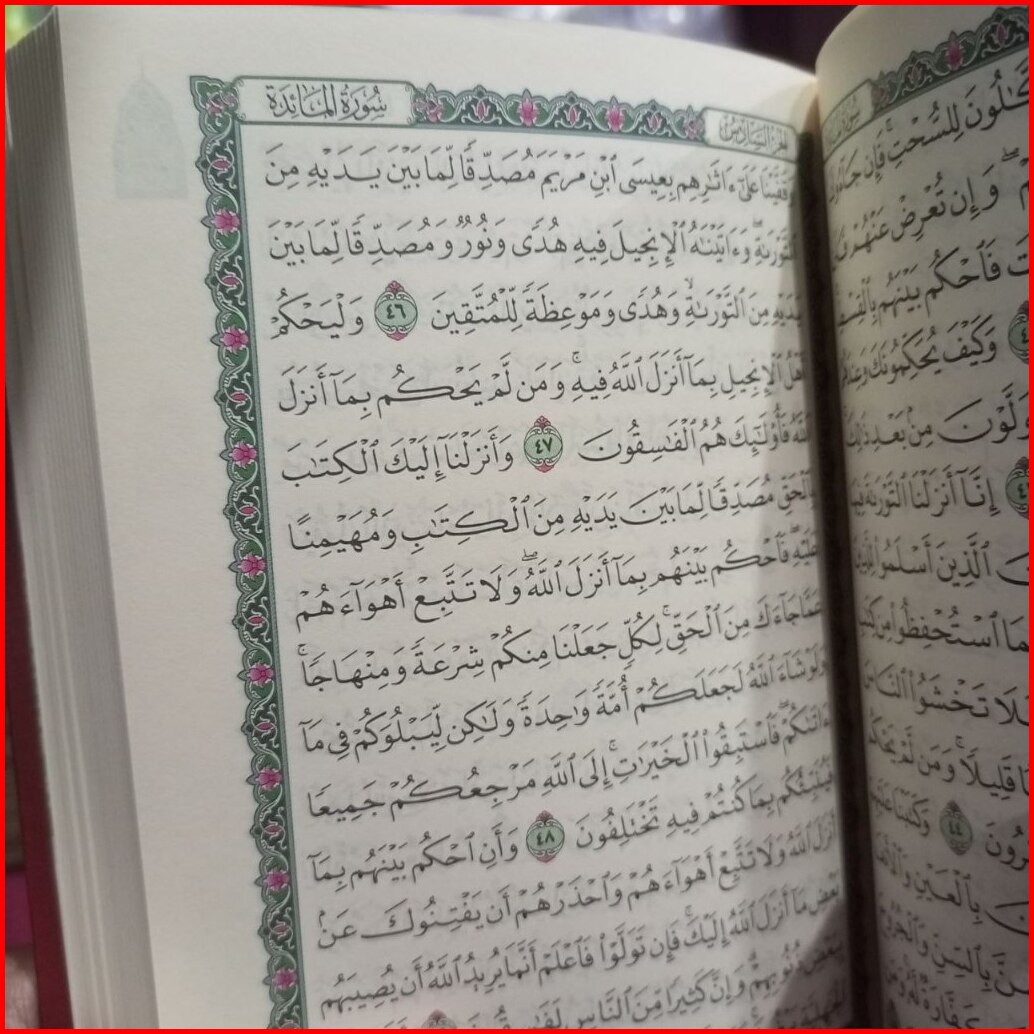 سُورَةُ المَائدَة
الجزء السَّادِسُ
وَقَفَّيْنَا عَلَىٰٓ ءَاثَٰرِهِم بِعِيسَى ٱبْنِ مَرْيَمَ مُصَدِّقًا لِّمَا بَيْنَ يَدَيْهِ مِنَ
ٱلتَّوْرَىٰةِۖ وَءَاتَيْنَٰهُ ٱلْإِنجِيلَ فِيهِ هُدًى وَنُورٌ وَمُصَدِّقًا لِّمَا بَيْنَ
يَدَيْهِ مِنَ ٱلتَّوْرَىٰةِ وَهُدًى وَمَوْعِظَةً لِّلْمُتَّقِينَ ٤٦ وَلْيَحْكُمْ
أَهْلُ ٱلْإِنجِيلِ بِمَآ أَنزَلَ ٱللَّهُ فِيهِۚ وَمَن لَّمْ يَحْكُم بِمَآ أَنزَلَ
ٱللَّهُ فَأُو۟لَٰٓئِكَ هُمُ ٱلْفَٰسِقُونَ ٤٧ وَأَنزَلْنَآ إِلَيْكَ ٱلْكِتَٰبَ
بِٱلْحَقِّ مُصَدِّقًا لِّمَا بَيْنَ يَدَيْهِ مِنَ ٱلْكِتَٰبِ وَمُهَيْمِنًا
عَلَيْهِۖ فَٱحْكُم بَيْنَهُم بِمَآ أَنزَلَ ٱللَّهُۖ وَلَا تَتَّبِعْ أَهْوَآءَهُمْ
عَمَّا جَآءَكَ مِنَ ٱلْحَقِّۚ لِكُلٍّ جَعَلْنَا مِنكُمْ شِرْعَةً وَمِنْهَاجًاۚ
وَلَوْ شَآءَ ٱللَّهُ لَجَعَلَكُمْ أُمَّةً وَٰحِدَةً وَلَٰكِن لِّيَبْلُوَكُمْ فِى مَآ
ءَاتَىٰكُمْۖ فَٱسْتَبِقُوا۟ ٱلْخَيْرَٰتِۚ إِلَى ٱللَّهِ مَرْجِعُكُمْ جَمِيعًا
فَيُنَبِّئُكُم بِمَا كُنتُمْ فِيهِ تَخْتَلِفُونَ ٤٨ وَأَنِ ٱحْكُم بَيْنَهُم بِمَآ
أَنزَلَ ٱللَّهُ وَلَا تَتَّبِعْ أَهْوَآءَهُمْ وَٱحْذَرْهُمْ أَن يَفْتِنُوكَ عَنۢ
بَعْضِ مَآ أَنزَلَ ٱللَّهُ إِلَيْكَۖ فَإِن تَوَلَّوْا۟ فَٱعْلَمْ أَنَّمَا يُرِيدُ ٱللَّهُ أَن يُصِيبَهُم
بِبَعْضِ ذُنُوبِهِمْۗ وَإِنَّ كَثِيرًا مِّنَ ٱلنَّاسِ لَفَٰسِقُونَ
لِلسُّحْتِۚ فَإِن
وَإِن تُعْرِضْ عَنْهُمْ
فَٱحْكُم بَيْنَهُم
وَكَيْفَ يُحَكِّمُونَكَ
مِنۢ بَعْدِ ذَٰلِكَ
إِنَّآ أَنزَلْنَا ٱلتَّوْرَىٰةَ فِيهَا
ٱلَّذِينَ أَسْلَمُوا۟
ٱسْتُحْفِظُوا۟ مِن
فَلَا تَخْشَوُا۟ ٱلنَّاسَ
قَلِيلًاۚ وَمَن لَّمْ
٤٤ وَكَتَبْنَا
بِٱلْعَيْنِ
بِٱلسِّنِّ